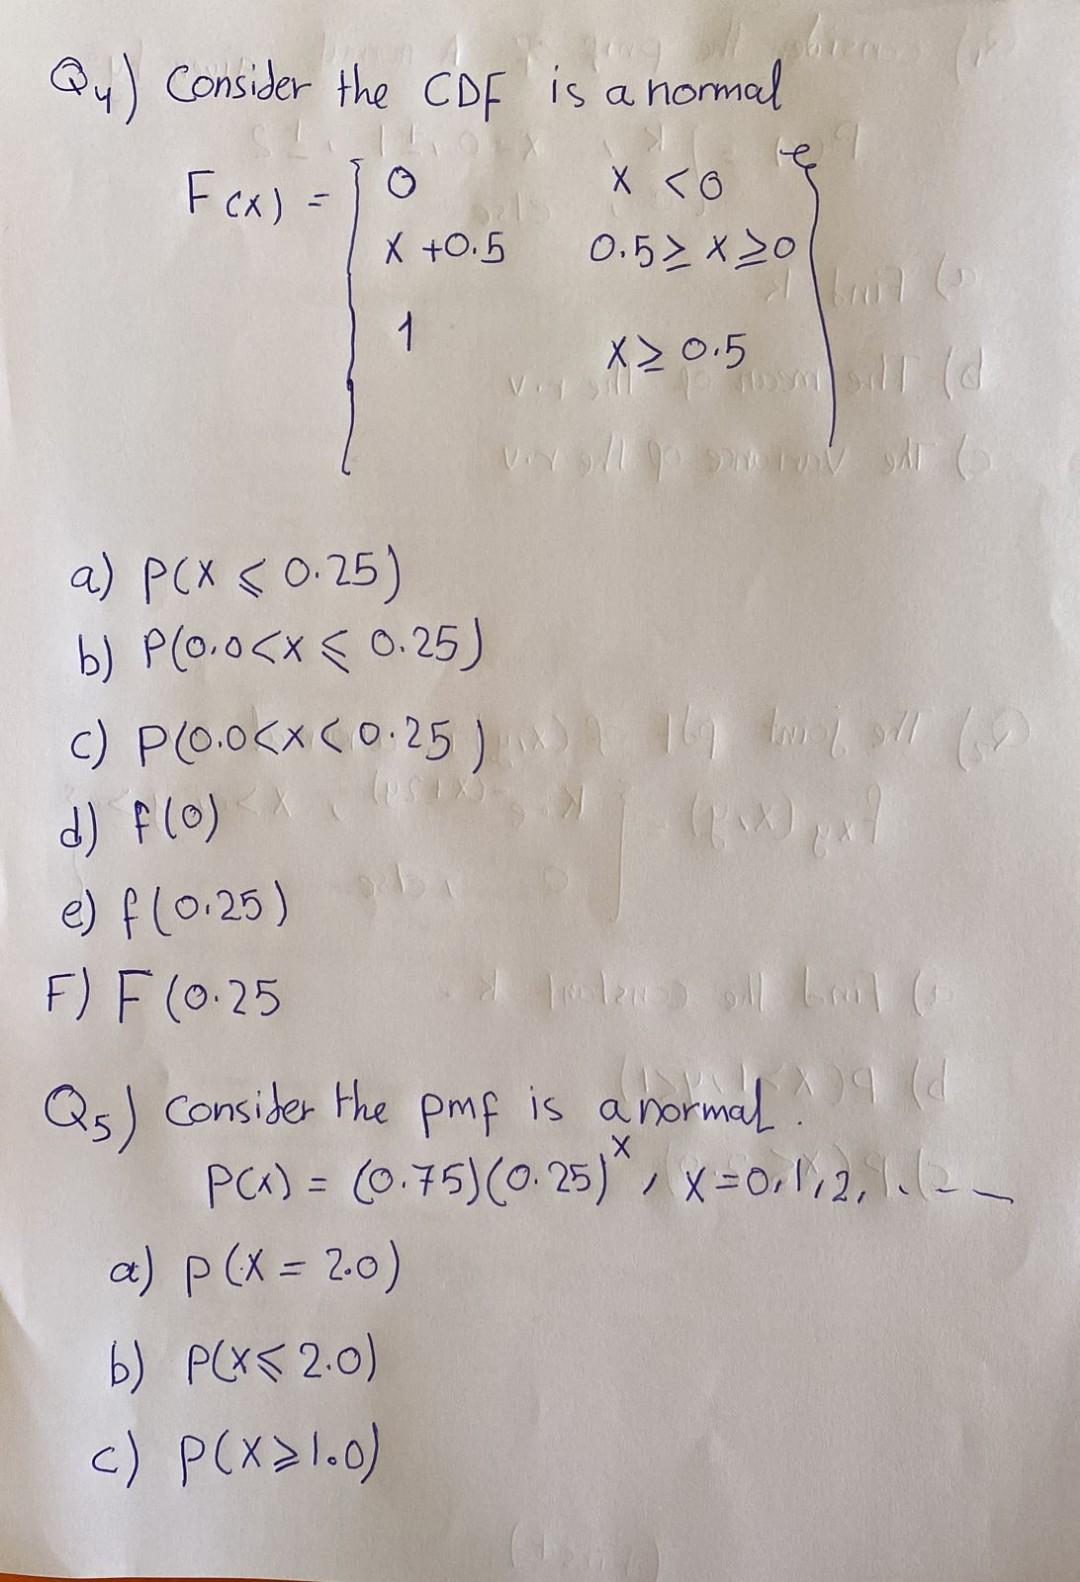 Q4) Consider the CDF is a normal
F(x) = { 0 x < 0
x + 0.5 0.5 ≥ x ≥ 0
1 x ≥ 0.5 }
a) P(X ≤ 0.25)
b) P(0.0 < x ≤ 0.25)
c) P(0.0 < x < 0.25)
d) f(0)
e) f(0.25)
F) F(0.25
Q5) Consider the pmf is a normal.
P(x) = (0.75)(0.25)^x, x = 0, 1, 2, . . - -
a) P(X = 2.0)
b) P(X ≤ 2.0)
c) P(X ≥ 1.0)